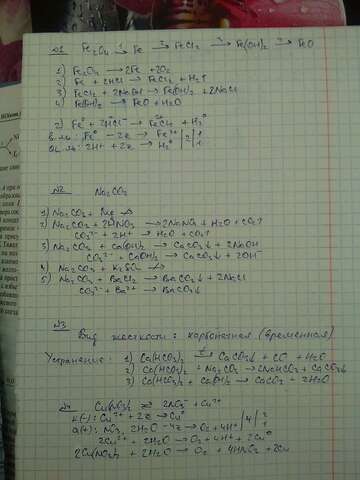 №1 Fe₂O₄ →¹ Fe →² FeCl₂ →³ Fe(OH)₂ →⁴ FeO
1) Fe₂O₄ → 2Fe + 2O₂
2) Fe + 2HCl → FeCl₂ + H₂↑
3) FeCl₂ + 2NaOH → Fe(OH)₂ + 2NaCl
4) Fe(OH)₂ → FeO + H₂O
2) Fe⁰ + 2H⁺Cl⁻ → Fe⁺²Cl₂ + H₂⁰
в-ль: Fe⁰ - 2e → Fe²⁺ | 2 | 1
ок-ль: 2H⁺ + 2e → H₂⁰ | 1
№2 Na₂CO₃
1) Na₂CO₃ + Mg ↛
2) Na₂CO₃ + 2HNO₃ → 2NaNO₃ + H₂O + CO₂↑
CO₃²⁻ + 2H⁺ → H₂O + CO₂↑
3) Na₂CO₃ + Ca(OH)₂ → CaCO₃↓ + 2NaOH
CO₃²⁻ + Ca(OH)₂ → CaCO₃↓ + 2OH⁻
4) Na₂CO₃ + K₂SO₄ ↛
5) Na₂CO₃ + BaCl₂ → BaCO₃↓ + 2NaCl
CO₃²⁻ + Ba²⁺ → BaCO₃↓
№3 Вид жесткости: карбонатная (временная)
Устранение: 1) Ca(HCO₃)₂ → CaCO₃↓ + CO + H₂O
2) Ca(HCO₃)₂ + Na₂CO₃ → 2NaHCO₃ + CaCO₃↓
3) Ca(HCO₃)₂ + Ca(OH)₂ → CaCO₃ + 2H₂O
№4 Cu(NO₃)₂ ⇄ 2NO₃⁻ + Cu²⁺
к(-): Cu²⁺ + 2e → Cu⁰ | 4 | 2
а(+): NO₃, 2H₂O - 4e → O₂ + 4H⁺ | 2 | 1
2Cu²⁺ + 2H₂O → O₂ + 4H⁺ + 2Cu⁰
2Cu(NO₃)₂ + 2H₂O → O₂ + 4HNO₃ + 2Cu